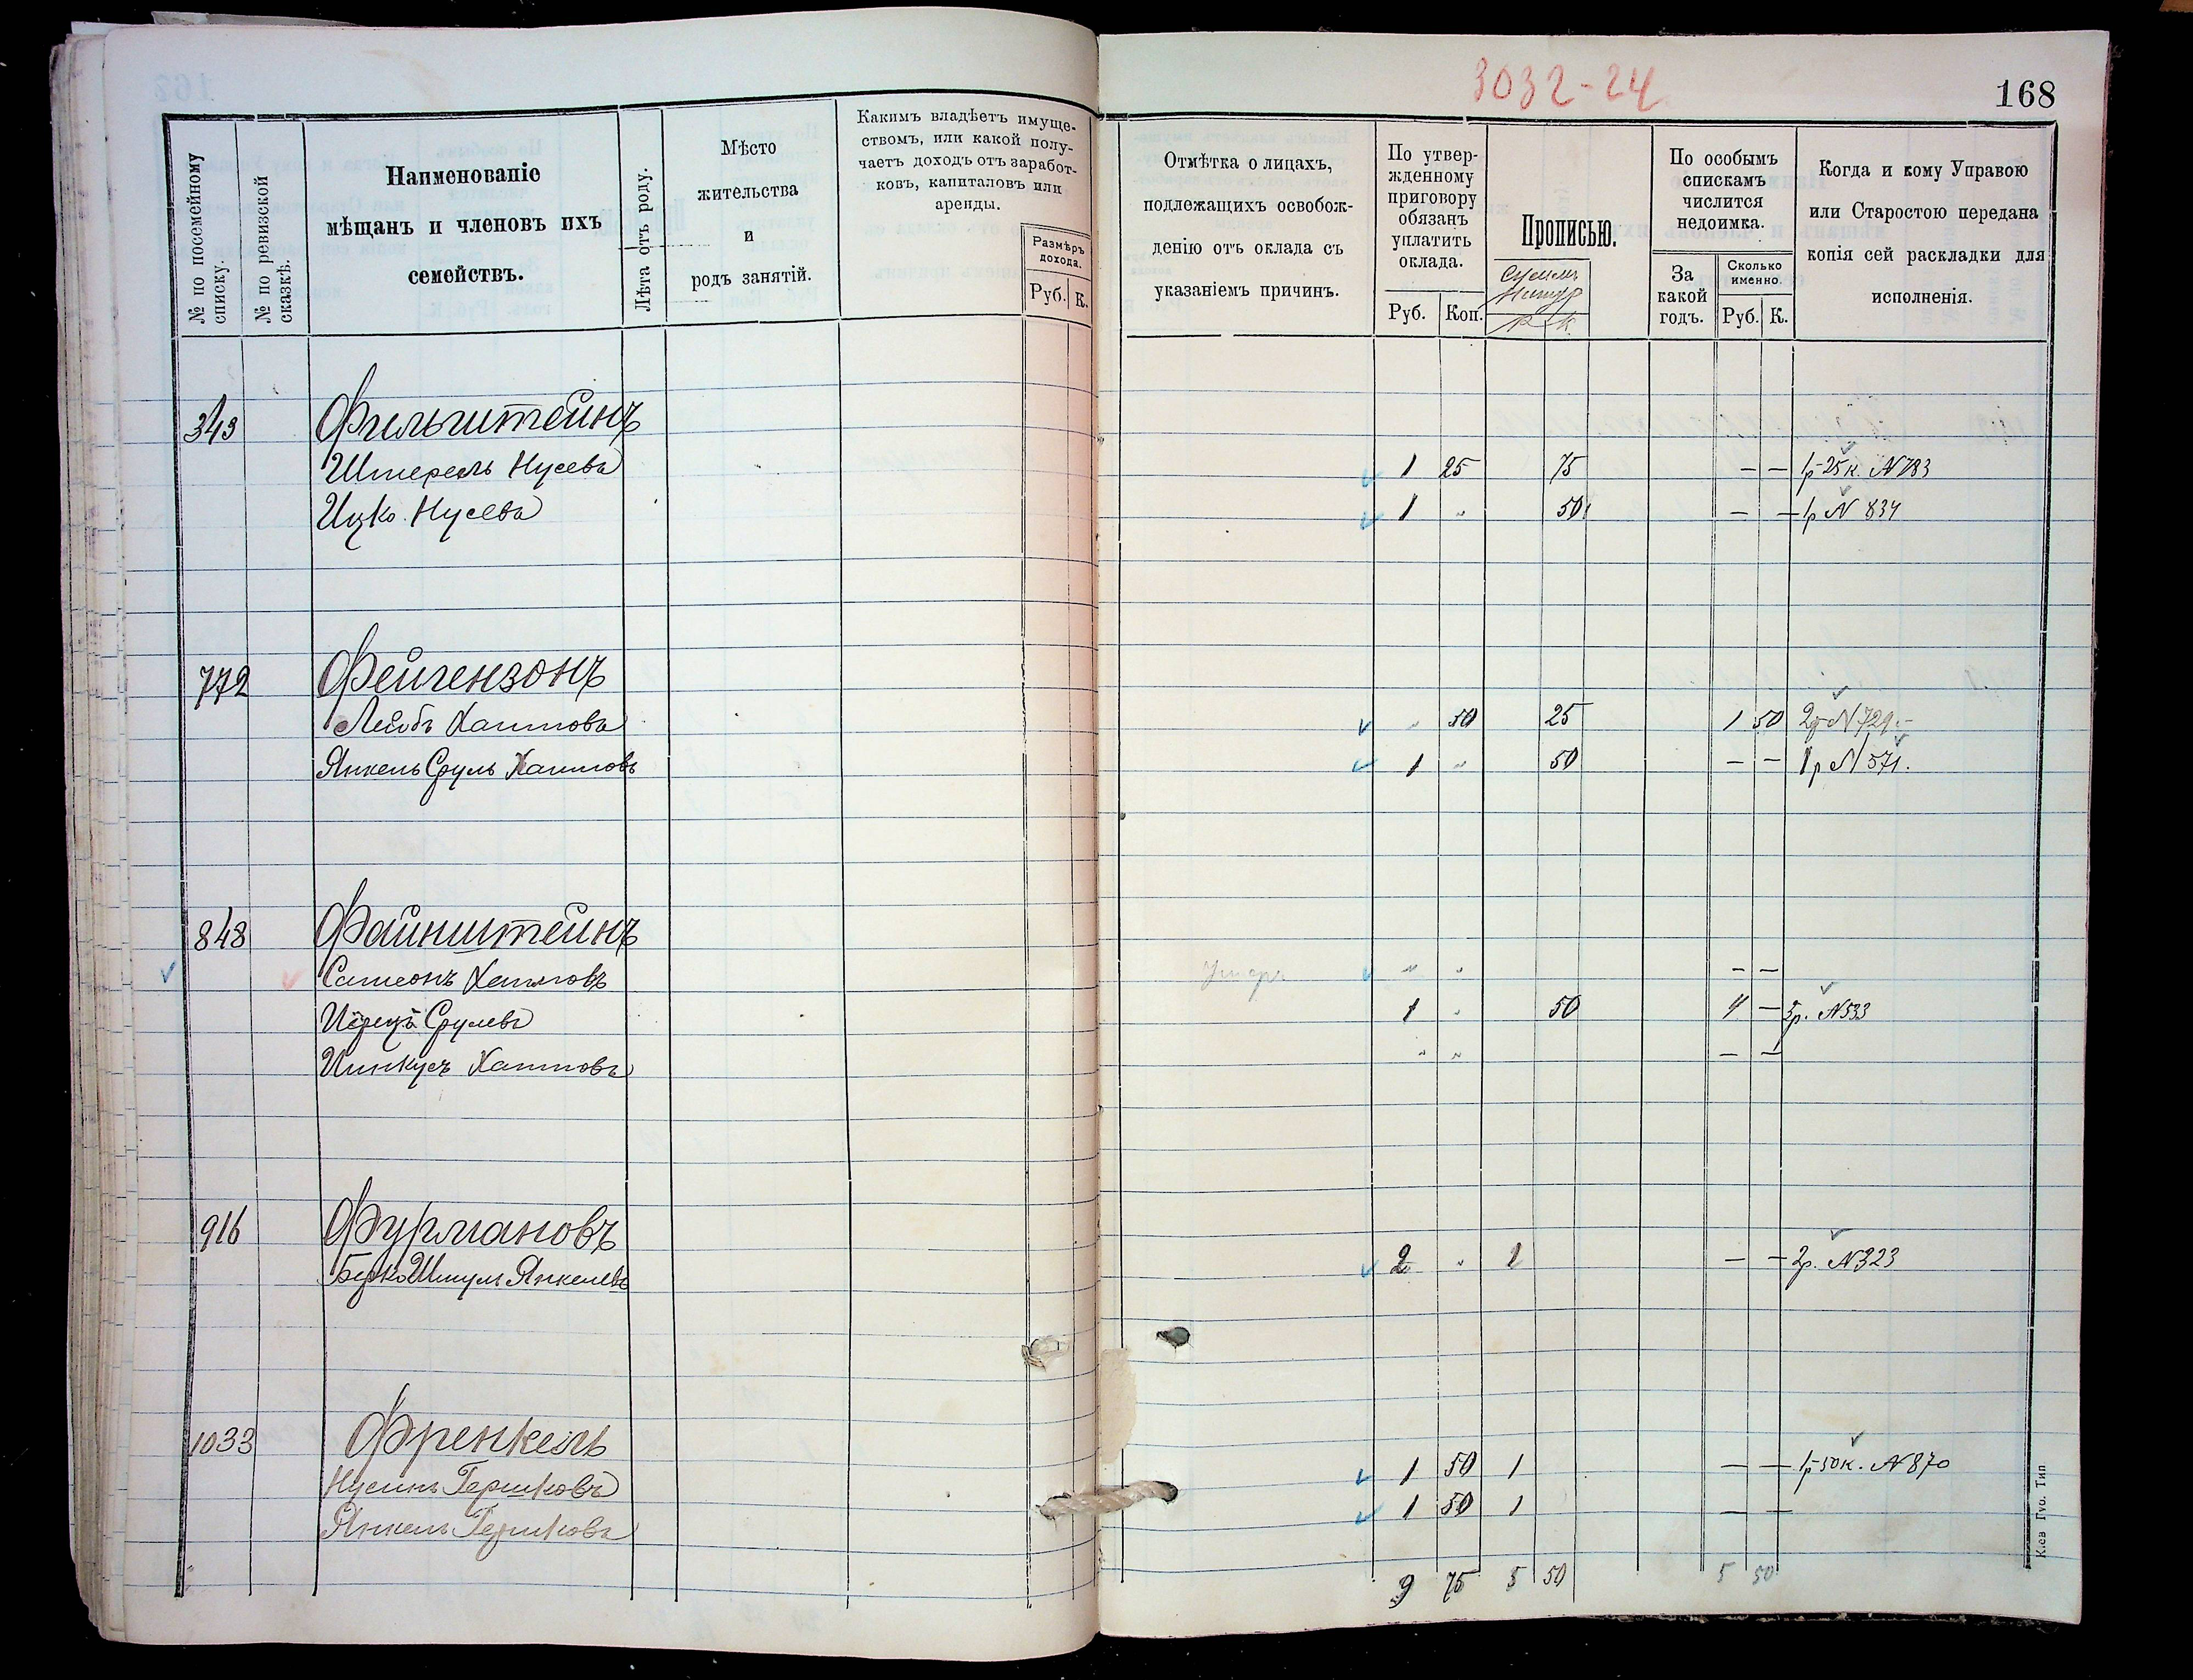 3032-24
168
№ по посемейному списку.
№ по ревизской сказкѣ.
Наименованіе
мѣщанъ и членовъ ихъ
семействъ.
Лѣта отъ роду.
Мѣсто
жительства
и
родъ занятій.
Какимъ владѣетъ имуще-
ствомъ, или какой полу-
чаетъ доходъ отъ заработ-
ковъ, капиталовъ или
аренды.
Размѣръ
дохода.
Руб. К.
Отмѣтка о лицахъ,
подлежащихъ освобож-
денію отъ оклада съ
указаніемъ причинъ.
По утвер-
жденному
приговору
обязанъ
уплатить
оклада.
Руб. Коп.
Прописью.
Р К
По особымъ
спискамъ
числится
недоимка.
За
какой
годъ.
Сколько
именно.
Руб. К.
Когда и кому Управою
или Старостою передана
копія сей раскладки для
исполненія.
343 Фильштейнъ
Нусевъ 1 25 75 — — 1р 25к. N 783
Ицко Нусевъ 1 „ 50 — — 1р N 834
772 Фейгензонъ
Лейбъ Хаимовъ „ 50 25 1 50 2р N 729
Янкель Сруль Хаимовъ 1 „ 50 — — 1р N 571.
848 Файнштейнъ
Самсонъ Хаимовъ Умеръ „ „ — —
Срулевъ 1 „ 50 4 — 5р. N 533
Пинкусъ Хаимовъ „ „ — —
916 Фурмановъ
Берко Шмуль Янкелевъ 2 „ 1 — — 2р. N 323
1033 Френкель
Нусинъ Гершковъ 1 50 1 — — 1р 50к. N 870
Янкель Гершковъ 1 50 1 — —
9 75 5 50 5 50
Кіев Губ. Тип